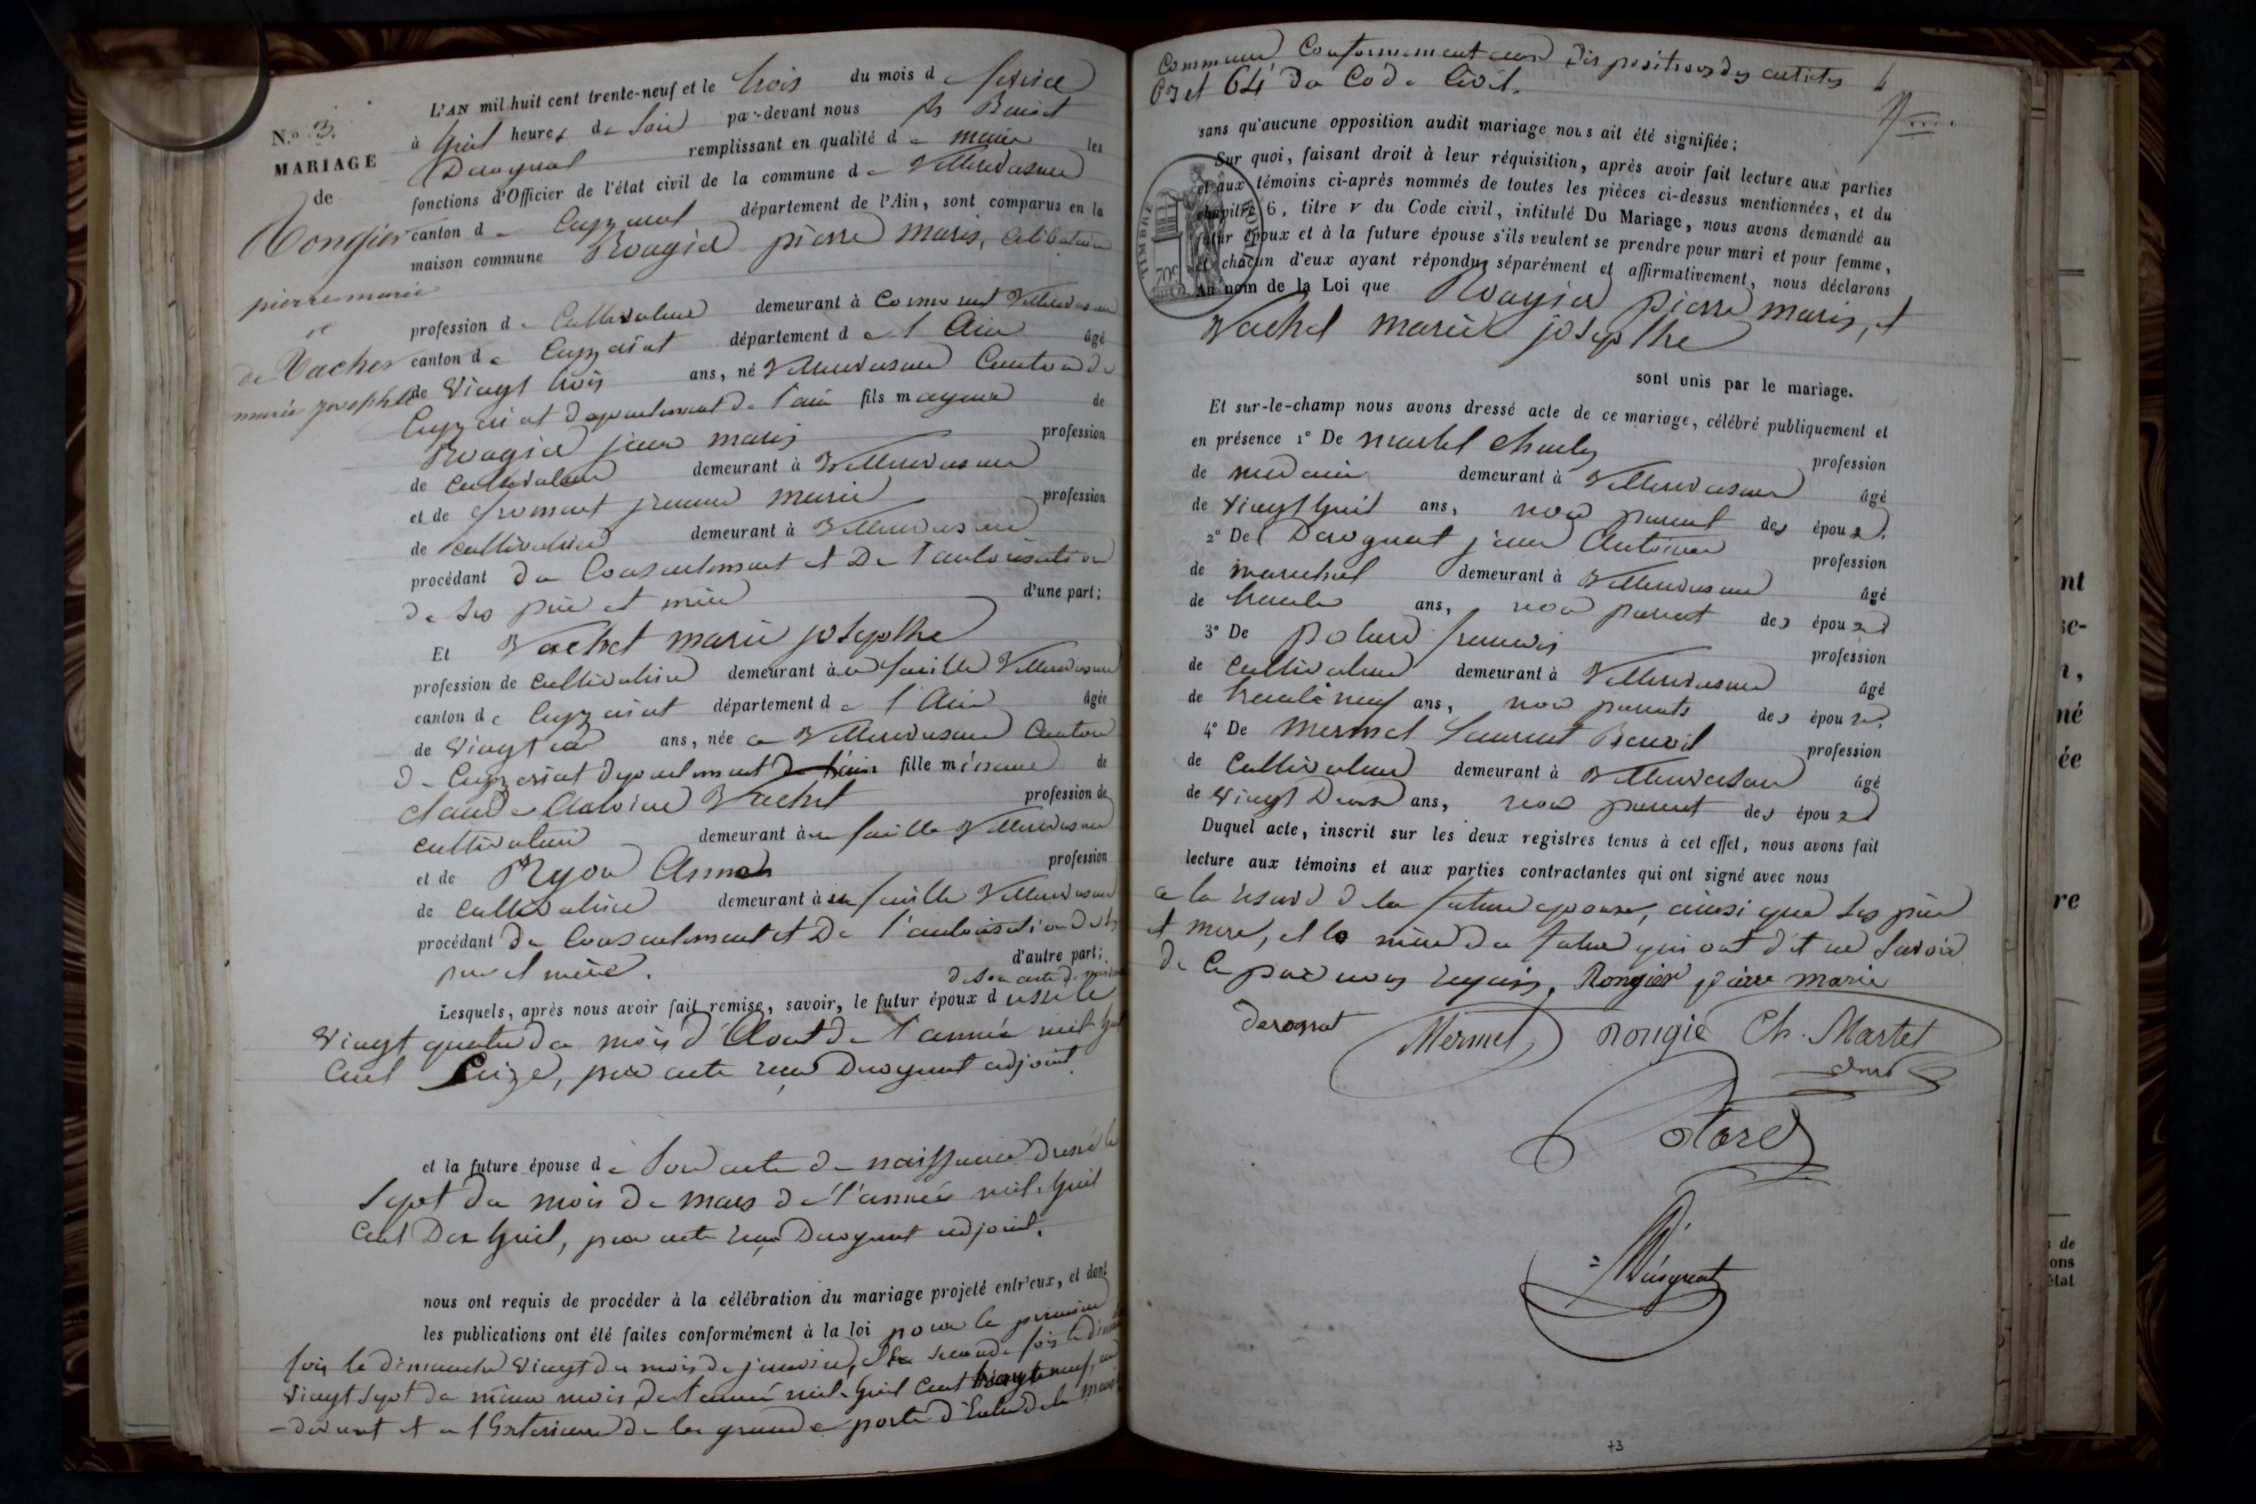 L'AN mil huit cent trente-neuf et le trois du mois de fevrier
à huit heures du soir par-devant nous Benoit
N.º 3. Derognat remplissant en qualité de maire les
MARIAGE fonctions d'Officier de l'état civil de la commune de Villereversure
de canton de Ceyzeriat département de l'Ain, sont comparus en la
Rongier maison commune Rougier pierre marie, celibataire
pierre marie
et profession de Cultivateur demeurant à Villereversure
de Vachet canton de Ceyzeriat département de l'Ain âgé
marie josephte de vingt trois ans, né Villereversure Canton de
Ceyzeriat departement de l'ain fils mageur de
Rougier jean marie profession
de cultivateur demeurant à Villereversure
et de fromont jeanne marie profession
de cultivatrice demeurant à Villereversure
procédant du Consentement et De l'autorisation
de ses père et mère d'une part;
Et Vachet marie josepthe
profession de cultivatrice demeurant à Villereversure
canton de Ceyzeriat département de l'Ain âgée
de vingt un ans, née a Villereversure Canton
de Ceyzeriat departement de l'ain fille mineure de
claude Antoine Vachet profession de
cultivateur demeurant à Villereversure
et de Ryon Anne profession
de cultivatrice demeurant à Villereversure
procédant du Consentement et De l'autorisation de ses
père et mère. d'autre part;
Lesquels, après nous avoir fait remise, savoir, le futur époux de son acte de naissance dressé le
vingt quatre du mois d'Aout de l'année mil huit
cent seize, par acte reçu Derognat adjoint.
et la future épouse de son acte de naissance dressé le
sept du mois de mars de l'année mil huit
cent Dix huit, par acte reçu Derognat adjoint.
nous ont requis de procéder à la célébration du mariage projeté entr'eux, et dont
les publications ont été faites conformément à la loi pour la premiere
fois le dimanche vingt du mois de janvier, et la seconde fois le dimanche
vingt sept du même mois de l'année mil huit cent trente neuf, au
-devant et a l'Exterieure de la grande porte d'Entrée de la maison
Commune, Conformement aux Dispositions des articles
63 et 64 du Code Civil.
sans qu'aucune opposition audit mariage nous ait été signifiée;
Sur quoi, faisant droit à leur réquisition, après avoir fait lecture aux parties
et aux témoins ci-après nommés de toutes les pièces ci-dessus mentionnées, et du
chapitre 6, titre v du Code civil, intitulé Du Mariage, nous avons demandé au
futur époux et à la future épouse s'ils veulent se prendre pour mari et pour femme,
et chacun d'eux ayant répondu séparément et affirmativement, nous déclarons
Au nom de la Loi que Rougier pierre marie, et
Vachet marie josepthe
sont unis par le mariage.
Et sur-le-champ nous avons dressé acte de ce mariage, célébré publiquement et
en présence 1º De martel Charles profession
de medecin demeurant à Villereversure âgé
de vingt huit ans, non parent des époux.
2º De Derognat jean Antoine profession
de marechal demeurant à Villereversure âgé
de trente ans, non parent des époux
3º De francois profession
de cultivateur demeurant à Villereversure âgé
de trente neuf ans, non parents des époux,
4º De Mermet Laurent Benoit profession
de Cultivateur demeurant à Villereversure âgé
de vingt Deux ans, non parent des époux
Duquel acte, inscrit sur les deux registres tenus à cet effet, nous avons fait
lecture aux témoins et aux parties contractantes qui ont signé avec nous
a la reserve de la future epouse, ainsi que ses père
et mere, et la mère du futur qui ont dit ne savoir
de ce par nous requis. Rongier pierre marie
derognat Mermet rougie Ch. Martel
Derognat
73